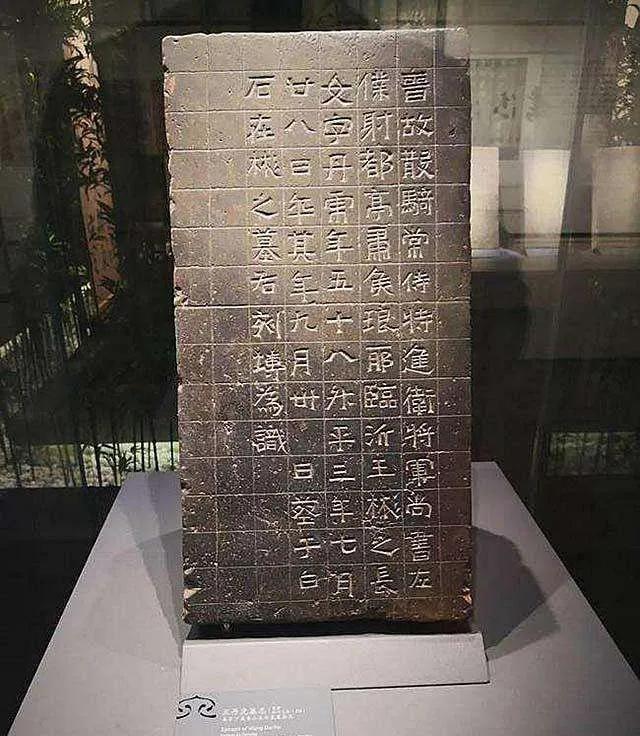 晉故散騎常侍特進衛將軍尚書左
僕射都亭肅侯琅耶臨沂王彬之長
女字丹虎年五十八升平三年七月
廿八日卒其年九月卅日葬于白
石在彬之墓右刻塼為識
王丹虎墓志
Epitaph of Wang Danhu